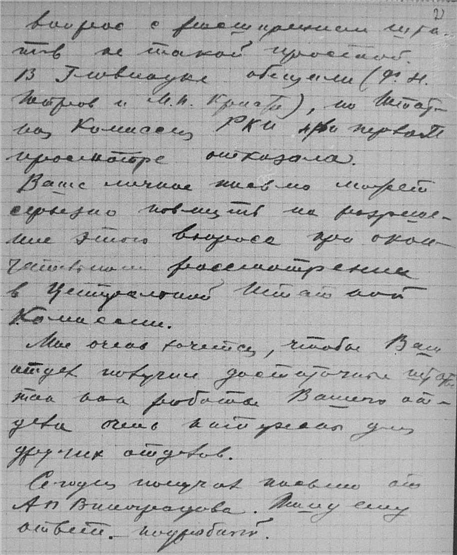 2)
вопрос с расширением шта-
тов не такой простой.
В Главнауке обещали (Ф. Н.
Петров и М. П. Кристи), но Штат-
ная Комиссия РКИ при первом
просмотре отказала.
Ваше личное письмо может
серьезно повлиять на разреше-
ние этого вопроса при окон-
чательном рассмотрении
в Центральной Штатной
Комиссии.
Мне очень хочется, чтобы Ваш
отдел получил достаточный штат,
так как работы Вашего от-
дела очень интересны для
других отделов.
Сегодня получил письмо от
А П Виноградова. Пишу ему
ответ - подробный.